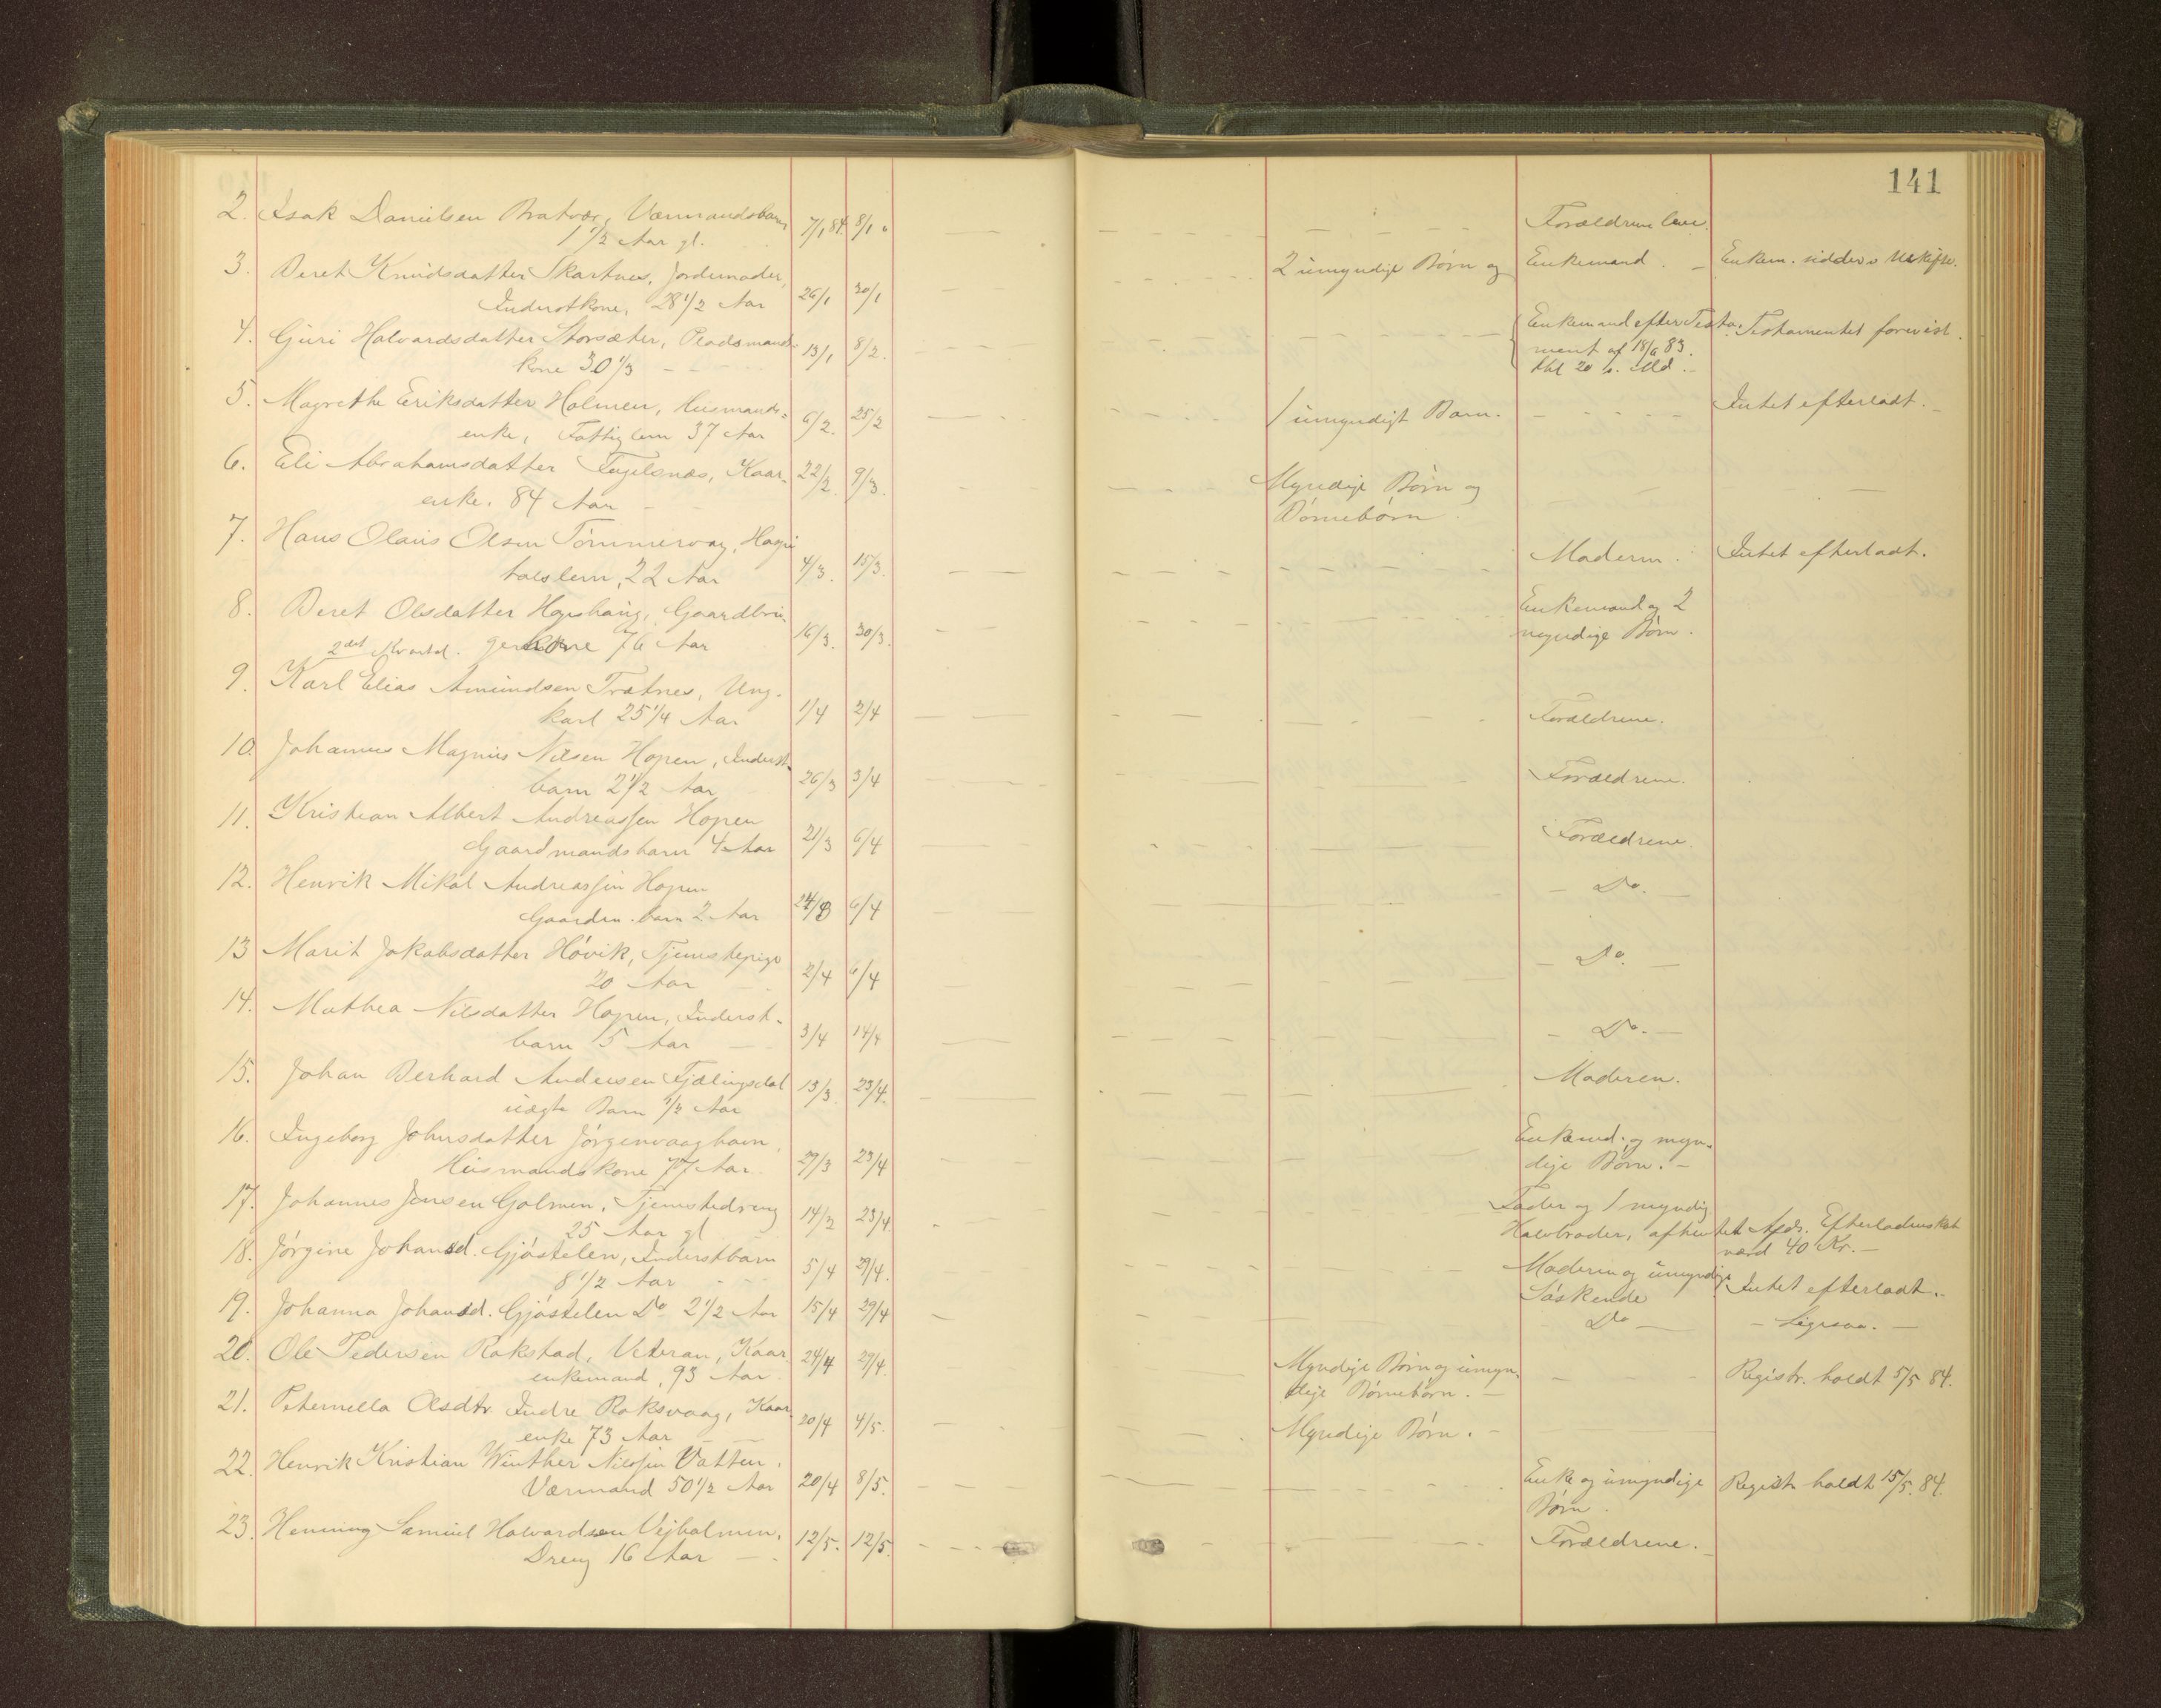 141
2. Isak Danielsen Bratvær, Værmandsbarn 7/1 84. 8/1 Forældrene leve
1 1/2 Aar gl.
3. Beret Knudsdatter Skartnes, Jordemoder, 26/1 30/1 2 umyndige Børn og Enkemand. Enkem. sidder i Uskifte.
Inderstkone, 28 1/2 Aar
4. Guri Halvardsdatter Storsæter, Pladsmands- 13/1 8/2. Enkemand efter Testa- Testamentet forevist.
kone 30 1/3 ment af 18/6 83.
5. Magrethe Eriksdatter Holmen, Husmands- 6/2. 25/2 1 umyndigt Barn. Intet efterladt.
enke, Fattiglem 37 Aar
6. Eli Abrahamsdatter Fuglsnæs, Kaar- 22/2. 9/3. Myndige Børn og
enke. 84 Aar Børnebørn.
7. Hans Olaus Olsen Tømmervag, Hospi 4/3. 15/3. Moderen. Intet efterladt.
talslem, 22 Aar
8. Beret Olsdatter Hopshaug, Gaardbru 16/3. 30/3. Enkemand og 2
gerkone 76 Aar myndige Børn.
2det Kvartal.
9. Karl Elias Amundsen Trætnes, Ung- 1/4 2/4 Forældrene.
karl 25 1/4 Aar
10. Johannes Magnus Nilsen Hopen, Inderst- 26/3 3/4 Forældrene.
barn 2 1/2 Aar
11. Kristian Albert Andreassen Hopen 21/3 6/4 Forældrene.
Gaardmandsbarn 4 Aar
12. Henrik Mikal Andreassen Hopen 24/3 6/4 Do.
Gaardm. barn 2 Aar
13 Marit Jakobsdatter Høvik, Tjenestepige 2/4 6/4 Do.
20 Aar
14. Mathea Nilsdatter Hopen, Inderst- 3/4 14/4 Do.
barn 5 Aar
15. Johan Berhard Andersen Fjælingsdal 13/3. 23/4. Moderen.
uægte Barn 1/2 Aar
16. Ingeborg Johnsdatter Jørgenvaaghavn, 29/3 23/4 Enkemd. og myn-
Husmandskone 77 Aar. dige Børn.
17. Johannes Jensen Golmen, Tjenestedreng 14/2 23/4 Fader og 1 myndig
25 Aar gl Halvbroder, Afds. Efterladenskab
værd 40 Kr.
18. Jørgine Johansd. Gjøstelen, Inderstbarn 5/4 29/4. Moderen og umyndige Intet efterladt.
8 1/2 Aar Søskende
19. Johanna Johansd. Gjøstelen Do 2 1/2 Aar 15/4 29/4 Do Ligesaa.
20. Ole Pedersen Rokstad, Veteran, Kaar 24/4 29/4. Myndige Børn og umyn- Registr. holdt 5/5 84.
enkemand, 93 Aar dige Børnebørn.
21. Peternella Olsdtr. Indre Roksvaag, Kaar- 20/4 4/5. Myndige Børn.
enke 73 Aar
22. Henrik Kristian Winther Nilssen Vatten. 20/4 8/5. Enke og umyndige Registr. holdt 15/5. 84.
Værmand 50 1/2 Aar Børn.
23. Henning Samuel Halvardsen Vejholmen. 12/5. 12/5. Forældrene.
Dreng 16 Aar